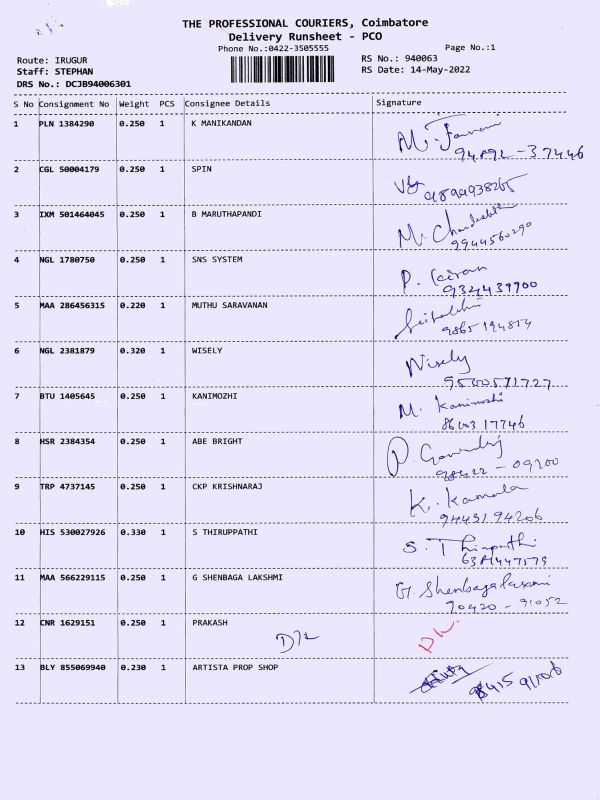 THE PROFESSIONAL COURIERS, Coimbatore
Delivery Runsheet - PCO
Phone No.:0422-3505555
Page No.:1
Route: IRUGUR
RS No.: 940063
Staff: STEPHAN
RS Date: 14-May-2022
DRS No.: DCJB94006301
S No Consignment No Weight PCS Consignee Details Signature
1 PLN 1384290 0.250 1 K MANIKANDAN M.
2 CGL 50004179 0.250 1 SPIN
3 IXM 501464045 0.250 1 B MARUTHAPANDI M.
9944560290
4 NGL 1780750 0.250 1 SNS SYSTEM P. Kiran
9324439900
5 MAA 286456315 0.220 1 MUTHU SARAVANAN
9865194814
6 NGL 2381879 0.320 1 WISELY Wisely
9500571727
7 BTU 1405645 0.250 1 KANIMOZHI M. Kanimozhi
8 HSR 2384354 0.250 1 ABE BRIGHT P.
9 TRP 4737145 0.250 1 CKP KRISHNARAJ K. Kamala
9443194206
10 HIS 530027926 0.330 1 S THIRUPPATHI S. Thirupathi
11 MAA 566229115 0.250 1 G SHENBAGA LAKSHMI G. Shenbagalaxmi
70420 - 91052
12 CNR 1629151 0.250 1 PRAKASH D/L
13 BLY 855069940 0.230 1 ARTISTA PROP SHOP